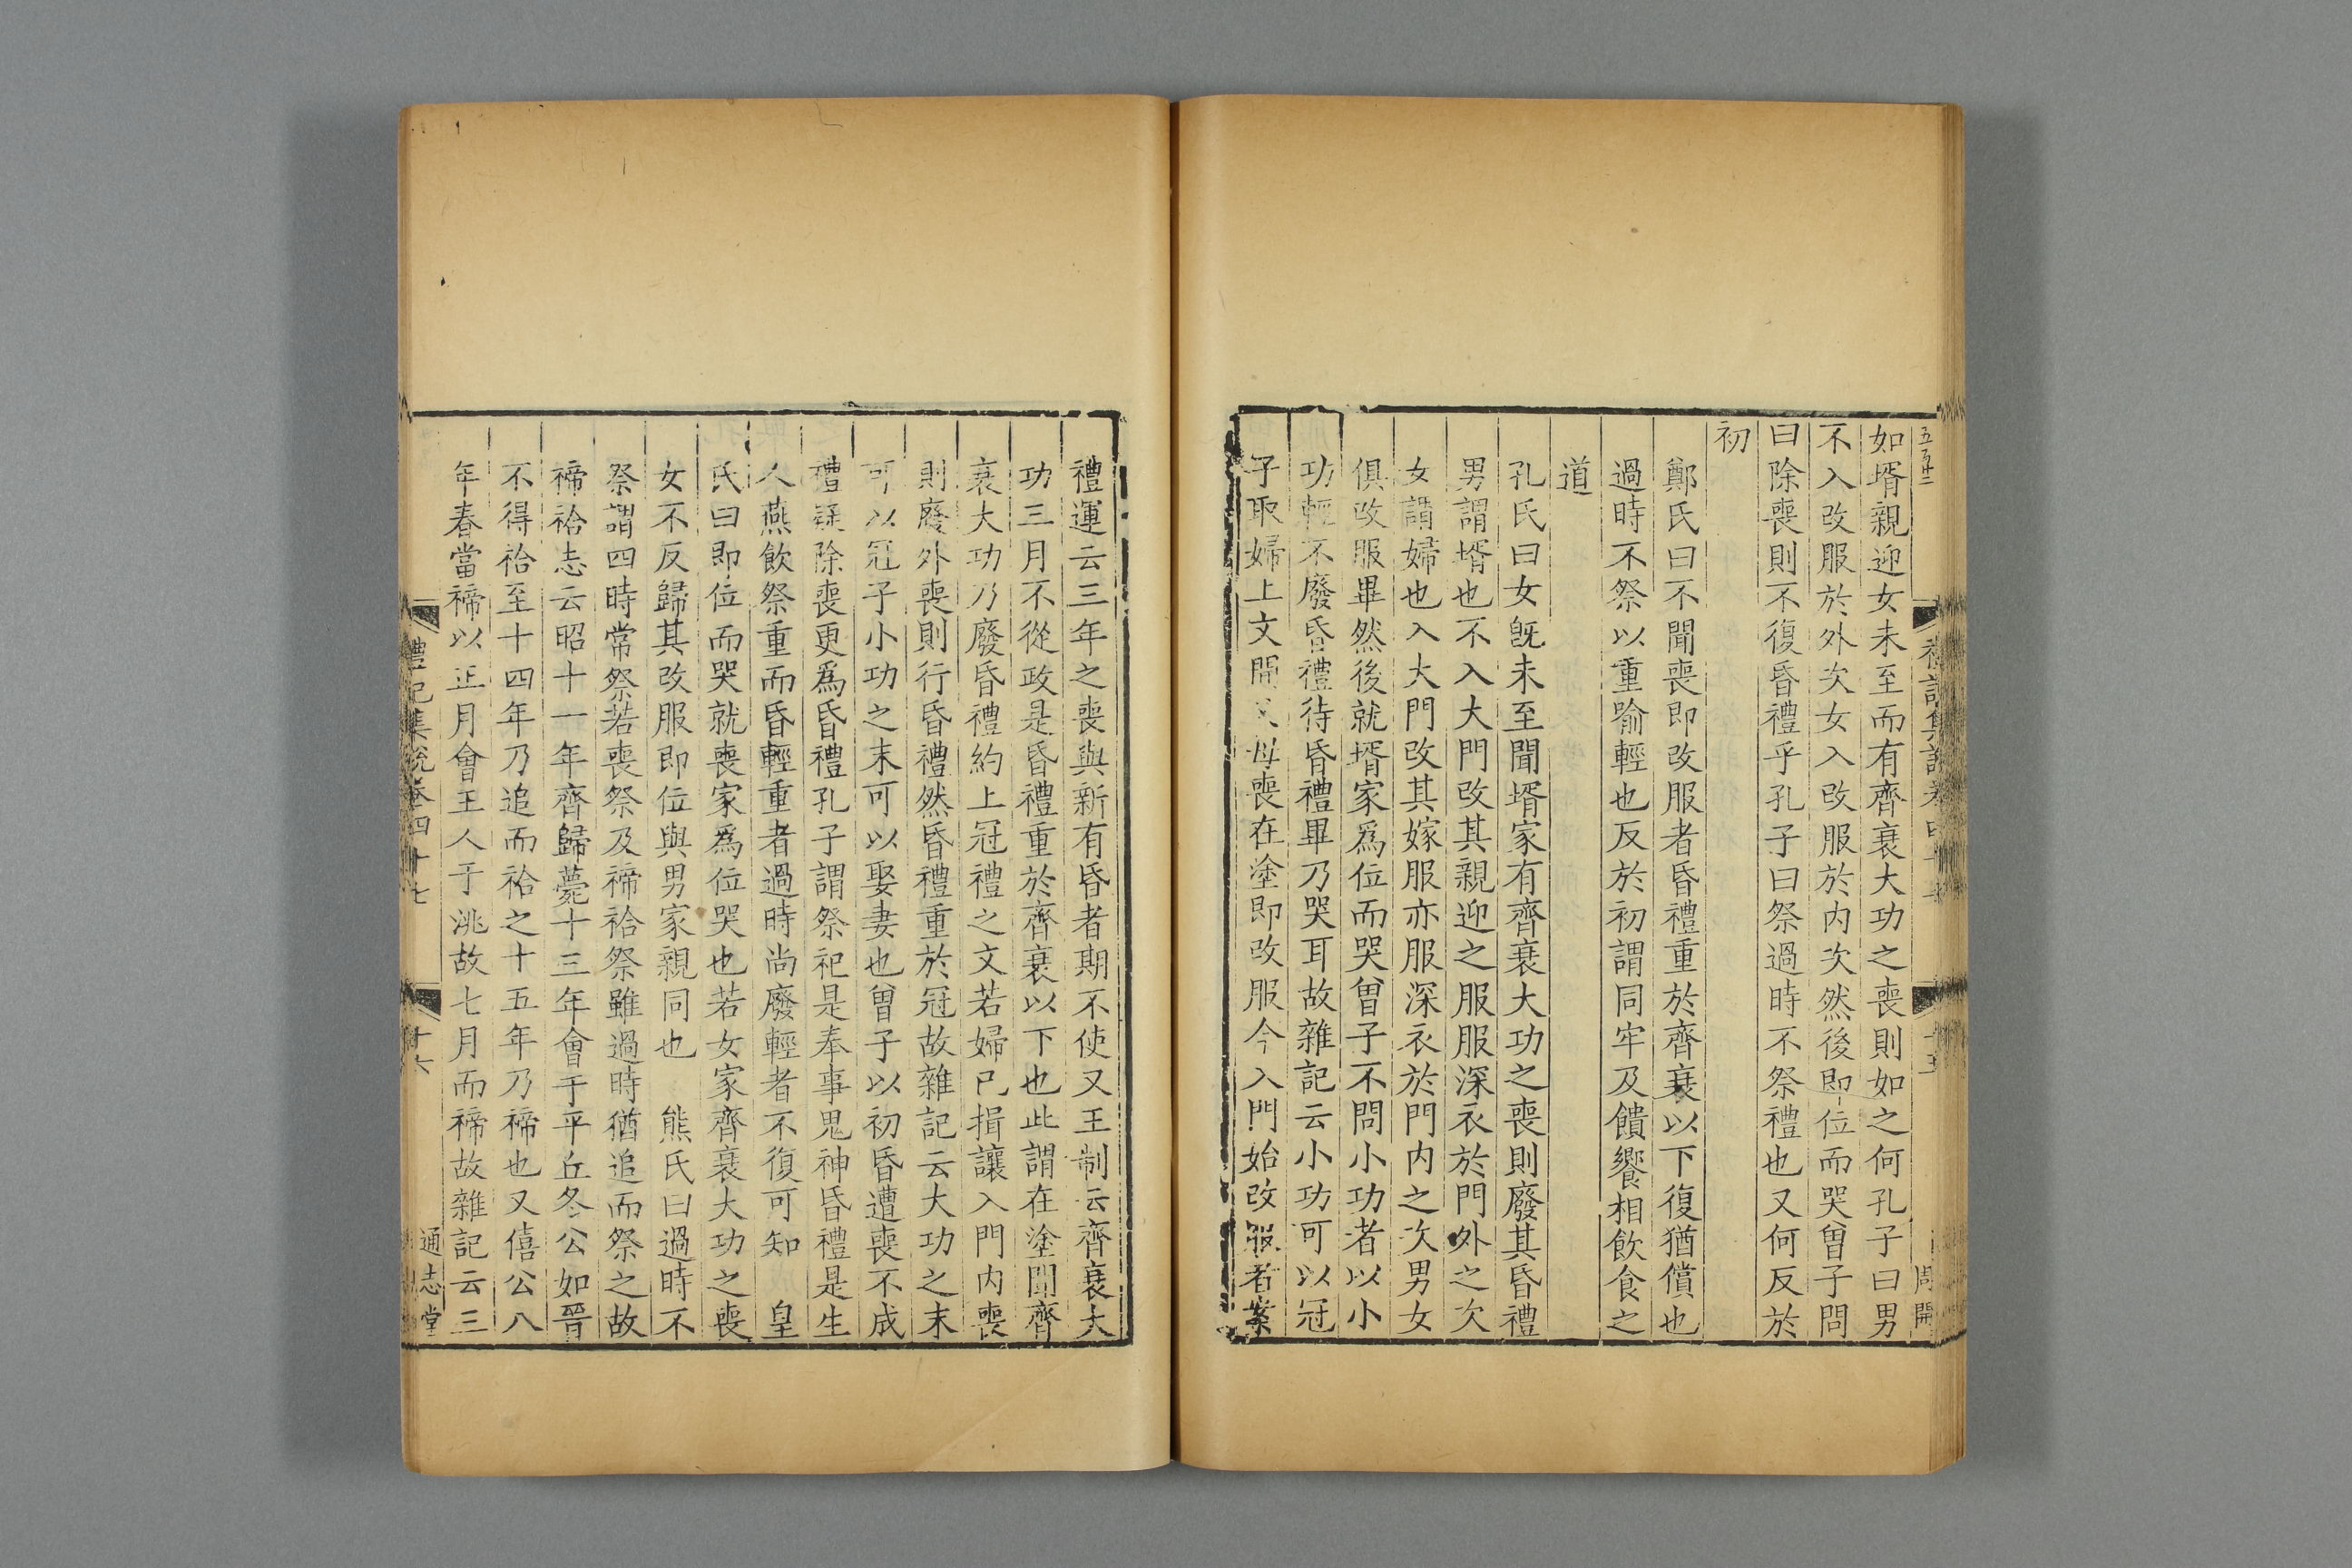 如壻親迎女未至而有齊衰大功之喪則如之何孔子曰男
不入改服於外次女入改服於内次然後即位而哭曾子問
曰除喪則不復昏禮乎孔子曰祭過時不祭禮也又何反於
初
鄭氏曰不聞喪即改服者昏禮重於齊衰以下復猶償也
過時不祭以重喻輕也反於初謂同牢及饋饗相飲食之
道
孔氏曰女旣未至聞壻家有齊衰大功之喪則廢其昏禮
男謂壻也不入大門改其親迎之服服深衣於門外之次
女謂婦也入大門改其嫁服亦服深衣於門内之次男女
俱改服畢然後就壻家爲位而哭曾子不問小功者以小
功輕不廢昏禮待昏禮畢乃哭耳故雜記云小功可以冠
子取婦上文聞父母喪在塗即改服今入門始改服者案
周開
禮運云三年之喪與新有昏者期不使又王制云齊衰大
功三月不從政是昏禮重於齊衰以下也此謂在塗聞齊
衰大功乃廢昏禮約上冠禮之文若婦已揖讓入門内喪
則廢外喪則行昏禮然昏禮重於冠故雜記云大功之末
可以冠子小功之末可以娶妻也曾子以初昏遭喪不成
禮疑除喪更爲昏禮孔子謂祭祀是奉事鬼神昏禮是生
人燕飲祭重而昏輕重者過時尚廢輕者不復可知 皇
氏曰即位而哭就喪家爲位哭也若女家齊衰大功之喪
女不反歸其改服即位與男家親同也 熊氏曰過時不
祭謂四時常祭若喪祭及禘祫祭雖過時猶追而祭之故
禘祫志云昭十一年齊歸薨十三年會于平丘冬公如晉
不得祫至十四年乃追而祫之十五年乃禘也又僖公八
年春當禘以正月會王人于洮故七月而禘故雜記云三
禮記集說卷四十七
十六
通志堂